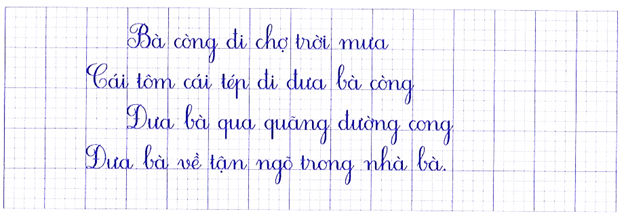 Bà còng đi chợ trời mưa
Cái tôm cái tép đi đưa bà còng
Đưa bà qua quãng đường cong
Đưa bà về tận ngõ trong nhà bà.